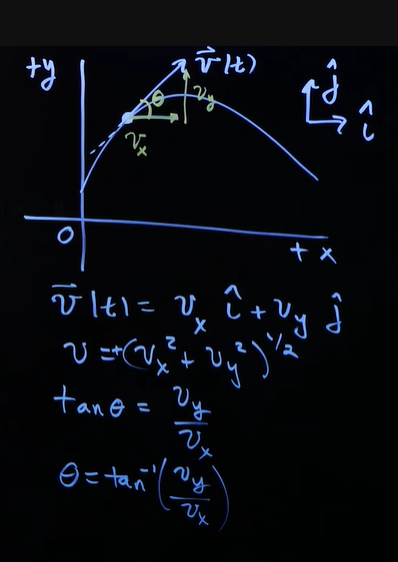 +y
v⃗(t)
θ
v_y
ĵ
v_x
î
0
+ x
v⃗(t) = v_x î + v_y ĵ
v = +(v_x² + v_y²)^1/2
tanθ = v_y/v_x
θ = tan⁻¹(v_y/v_x)